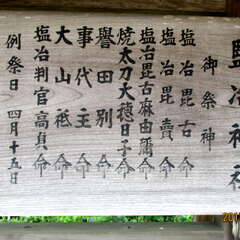 塩冶神社
御祭神
塩冶毘古命
塩冶毘賣命
塩冶毘古麻由彌命
焼太刀大穂日子命
譽田別命
事代主命
大山祇命
塩冶判官高貞命
例祭日 四月十五日